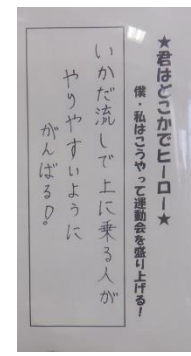 ★君はどこかでヒーロー★
僕・私はこうやって運動会を盛り上げる！
いかだ流しで上に乗る人が
やりやすいように
がんばる!